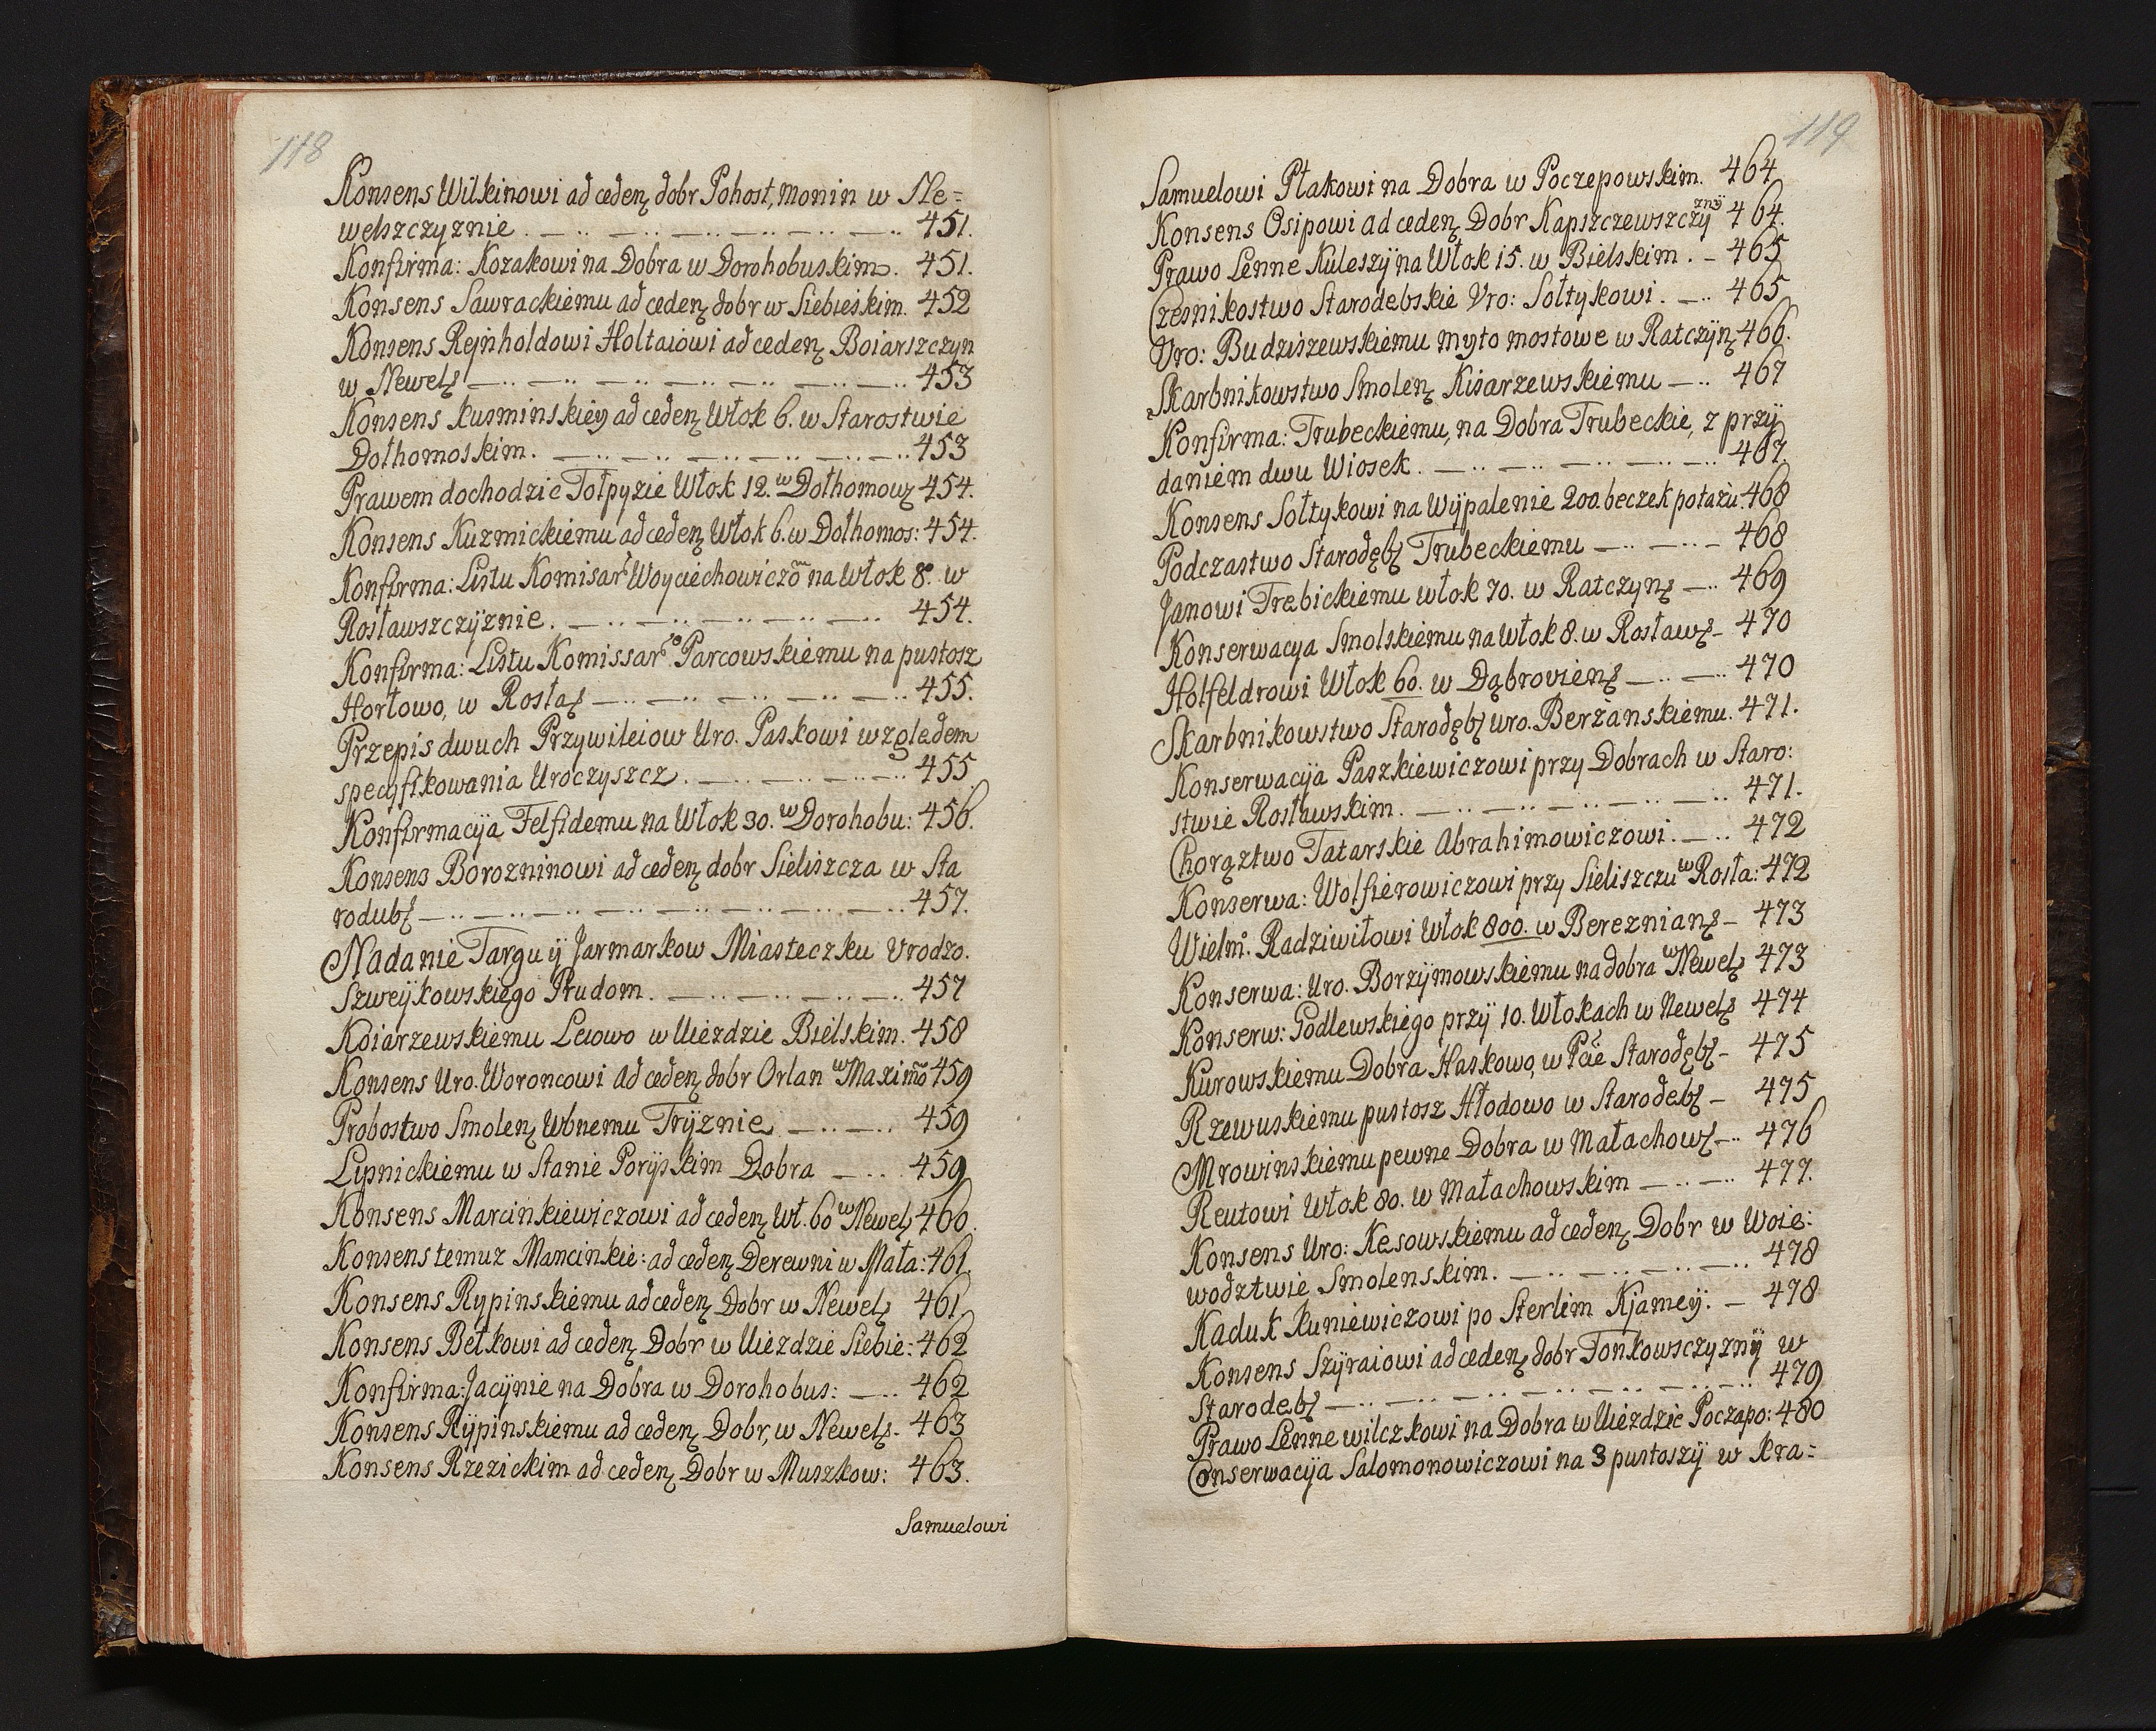 118
Konsens Wilkinowi ad ceden dobr Pohost, Monin w Ne=
welszczyznie . 451.
Konfirma: Kozakowi na Dobra w Dorohobuskim. 451.
Konsens Sawrackiemu ad ceden dobr w Siebieskim. 452
Konsens Rejnholdowi Holtaiowi ad ceden Boiarszczyn
w Newel 453
Konsens Kusminskiey ad ceden Włok 6. w Starostwie
Dołhomoskim. 453
Prawem dochodzic Tołpyzie Włok 12. w Dołhomow 454.
Konsens Kuzmickiemu ad ceden Włok 6. w Dołhomos: 454.
Konfirma: Listu Komisar Woyciechowiczom na Włok 8. w
Rosławszczyznie. 454.
Konfirma: Listu Komissar Parcowskiemu na pustosz
Hortowo, w Rosła 455.
Przepis dwuch Przywileiow Uro. Paskowi względem
specyfikowania Uroczyszcz. 455
Konfirmacyja Felfidemu na Włok 30. w Dorohobu: 456.
Konsens Borozninowi ad ceden dobr Sieliszcza w Sta
rodub 457.
Nadanie Targu ÿ Jarmarkow Miasteczku Vrodzo.
Szweÿkowskiego Prudom. 457
Koiarzewskiemu Lciowo w Uiezdzie Bielskim. 458
Konsens Uro. Woroncowi ad ceden dobr Orlan w Maximo 459
Probostwo Smolen Wbnemu Trÿznie 459
Lipnickiemu w Stanie Porÿskim Dobra 459
Konsens Marcinkiewiczowi ad ceden Wł. 60 w Newel 460.
Konsens temuz Mancinkie: ad ceden Derewni w Mała: 461.
Konsens Rypinskiemu ad ceden Dobr w Newel 461
Konsens Bełkowi ad ceden Dobr w Uiezdzie Siebie: 462
Konfirma: Jacÿnie na Dobra w Dorohobus: 462
Konsens Rÿpinskiemu ad ceden Dobr, w Newel 463
Konsens Rzezickim ad ceden Dobr w Muszkow: 463.
Samuelowi
119
Samuelowi Ptakowi na Dobra w Poczepowskim. 464
Konsens Osipowi ad ceden Dobr Kapszczewszczyznÿ 464.
Prawo Lenne Kuleszÿ na Włok 15. w Bielskim . 465
Czesnikostwo Starodebskie Vro: Sołtykowi. 465
Vro: Budziszewskiemu myto mostowe w Ratczÿn 466.
Skarbnikowstwo Smolen Kisarzewskiemu 467
Konfirma: Trubeckiemu, na Dobra Trubeckie, z przÿ
daniem dwu Wiosek. 467.
Konsens Sołtykowi na Wÿpalenie 200. beczek potażu. 468
Podczastwo Starodęb Trubeckiemu 468
Janowi Trębickiemu włok 70. w Ratczyn 469
Konserwacya Smolskiemu na Włok 8. w Rosław 470
Holfeldrowi Włok 60. w Dąbrovien 470
Skarbnikowstwo Starodęb uro. Berżanskiemu. 471.
Konserwacÿja Paszkiewiczowi przy Dobrach w Staro:
stwie Rosławskim. 471.
Chorąztwo Tatarskie Abrahimowiczowi. 472
Konserwa: Wolfierowiczowi przy Sieliszczu w Rosła: 472
Wielm. Radziwiłowi Włok 800. w Bereznian 473
Konserwa: Uro. Borzÿmowskiemu na dobra w Newel 473
Konserw: Godlewskiego przÿ 10. Włokach w Newel 474
Kurowskiemu Dobra Haskowo, w Pcie Starodęb 475
Rzewuskiemu pustosz Hłodowo w Starodeb 475
Mrowinskiemu pewne Dobra w Małachow 476
Reutowi Włok 80. w Małachowskim 477.
Konsens Uro: Kęsowskiemu ad ceden Dobr w Woie:
wodztwie Smolenskim. 478
Kaduk Kuniewiczowi po Sterlim Kjameÿ. 478
Konsens Szÿraiowi ad ceden dobr Tonkowsczyznÿ w
Starodeb 479
Prawo Lenne wilczkowi na Dobra w Uiezdzie Poczapo: 480
Conserwacÿja Salomonowiczowi na 3 pustoszÿ w Kra=